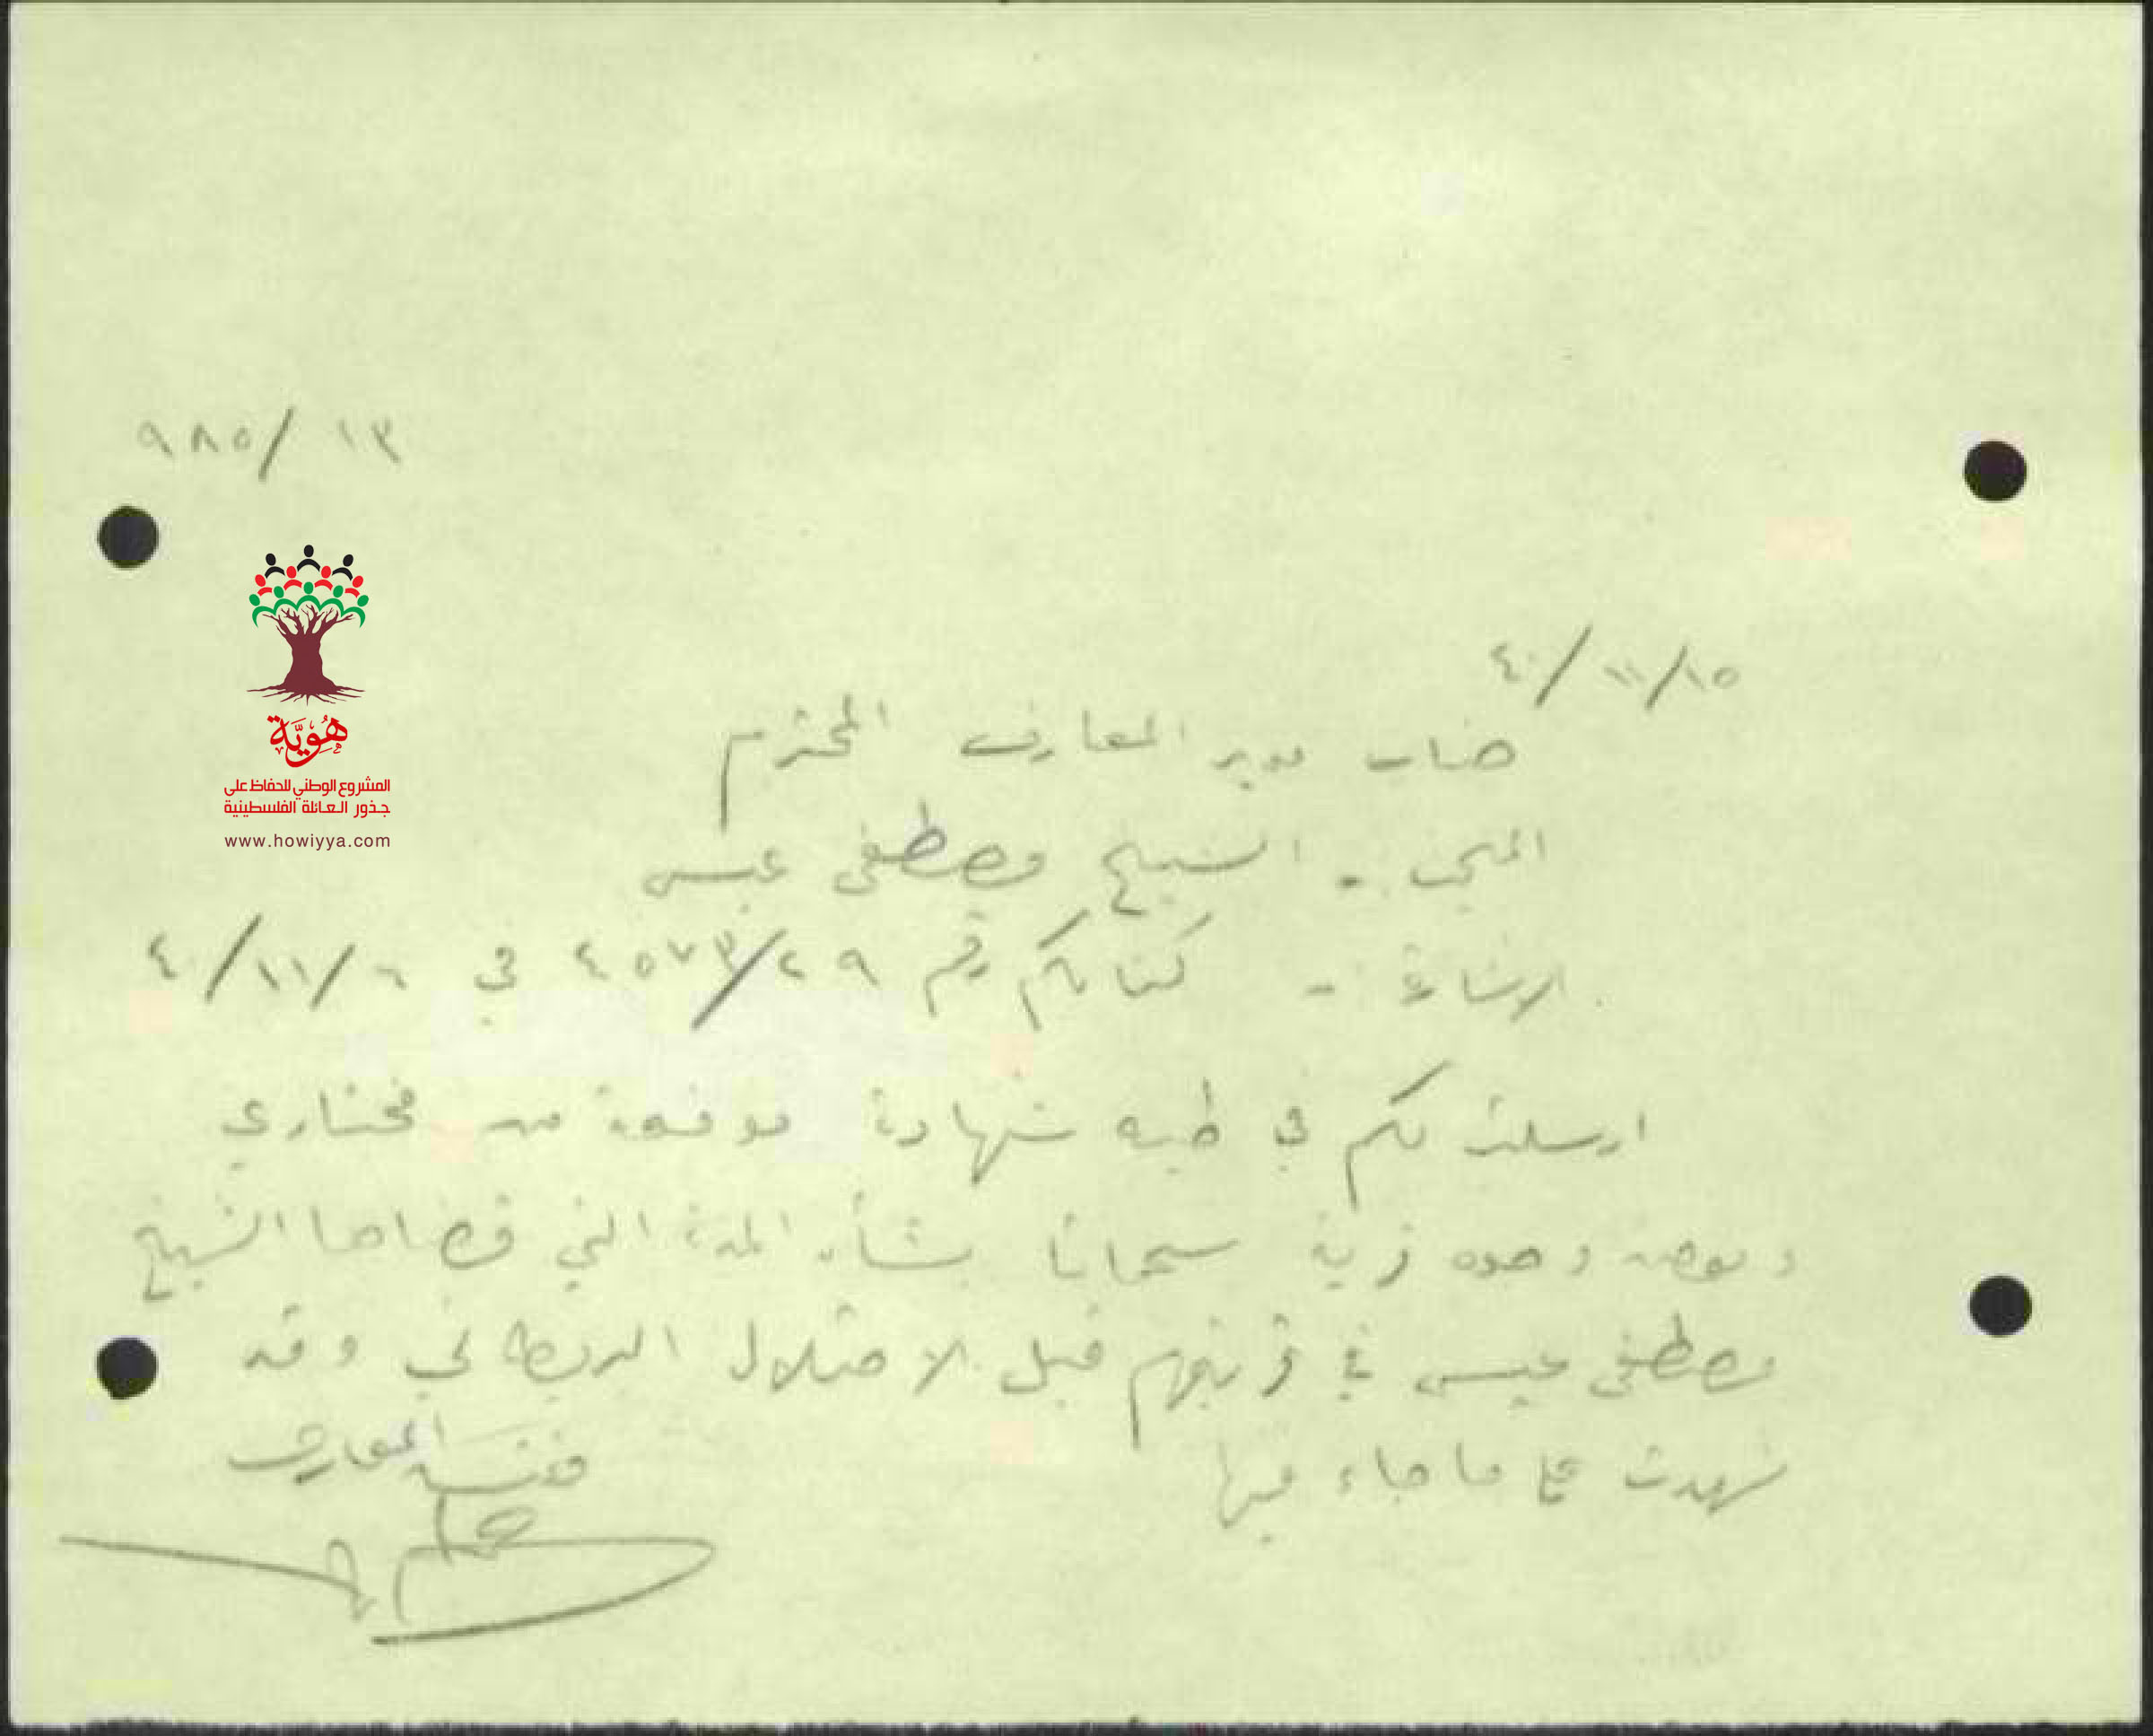 ٩٨٥/ ١٣
هُوِيَّة
المشروع الوطني للحفاظ على
جذور العائلة الفلسطينية
www.howiyya.com
٤٠/١١/١٥
جناب مدير المعارف المحترم
الشيخ مصطفى عيسى
الاشارة :- كتابكم رقم ٤٥٧٣/٢٩ في ٤٠/١١/٦
ارسلت لكم في طيه شهادة موقعة من مختاري
و بعض وجوه قرية سحماتا بشأن المدة التي قضاها الشيخ
مصطفى عيسى في قريتهم قبل الاحتلال البريطاني وقد
شهدت على ما جاء فيها
مفتش المعارف